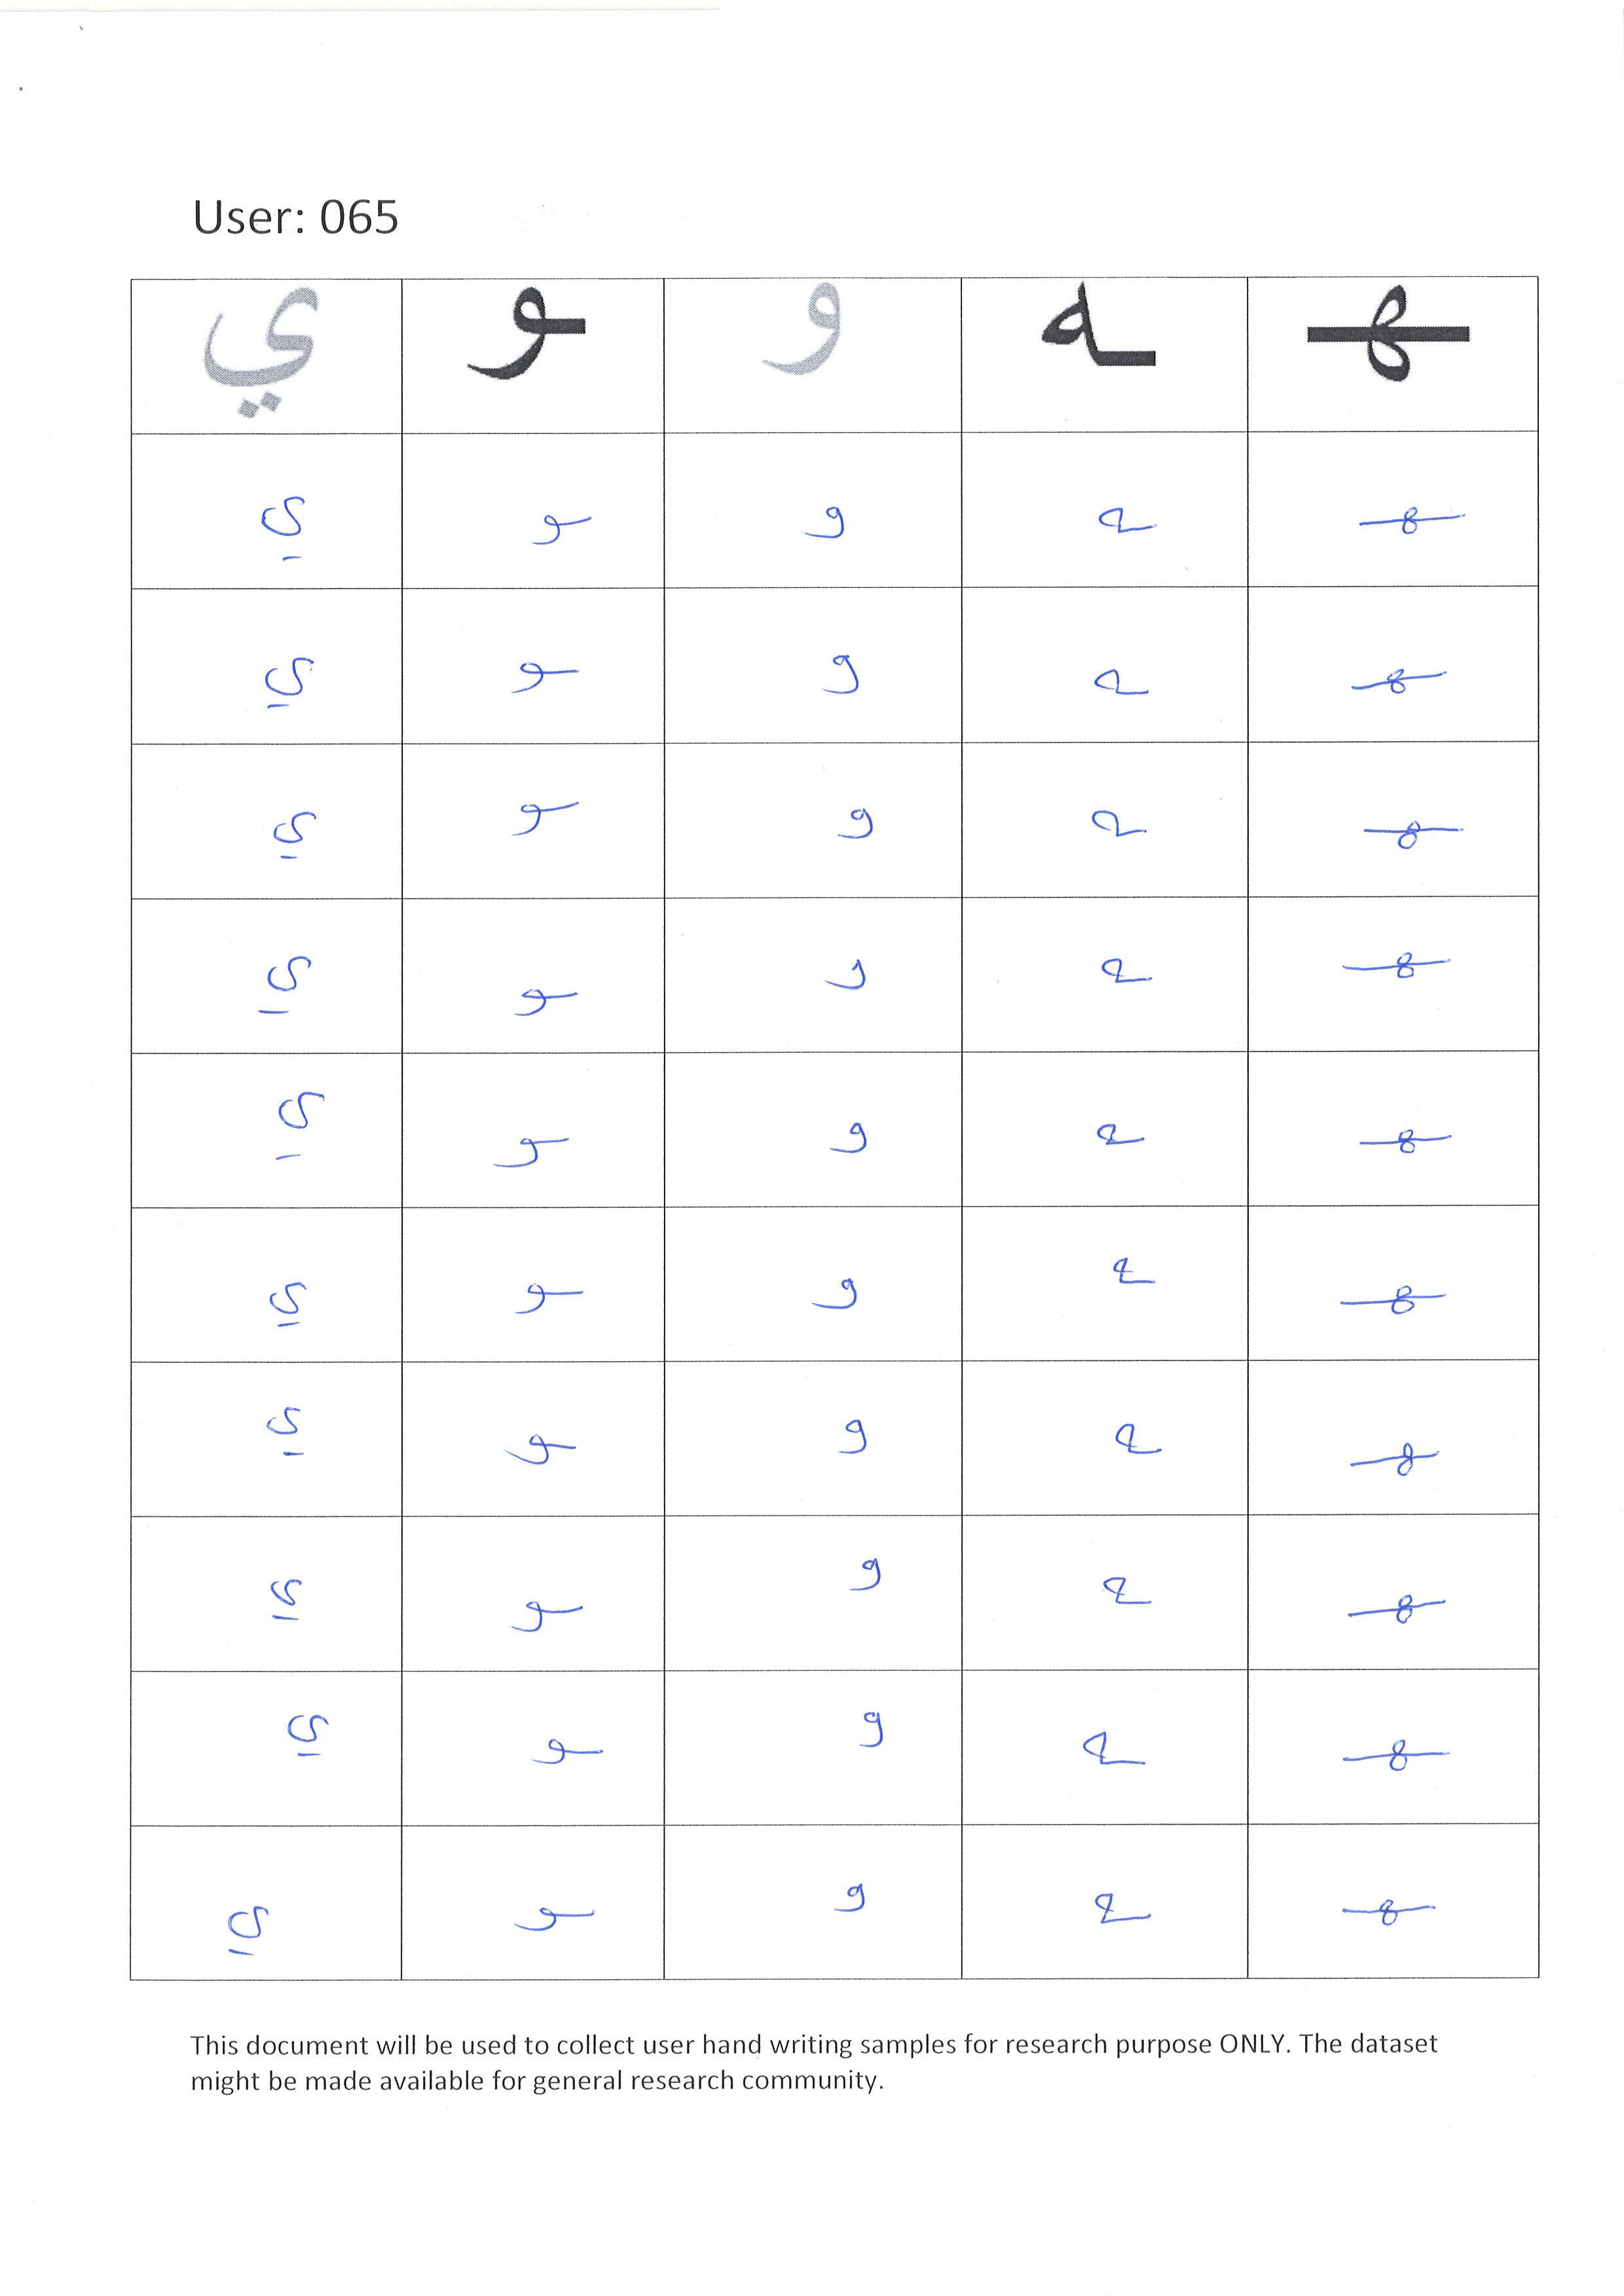 User: 065
ي ـو و ـه ـهـ
ي ـو و ـه ـهـ
ي ـو و ـه ـهـ
ي ـو و ـه ـهـ
ي ـو و ـه ـهـ
ي ـو و ـه ـهـ
ي ـو و ـه ـهـ
ي ـو و ـه ـهـ
ي ـو و ـه ـهـ
ي ـو و ـه ـهـ
ي ـو و ـه ـهـ
This document will be used to collect user hand writing samples for research purpose ONLY. The dataset
might be made available for general research community.